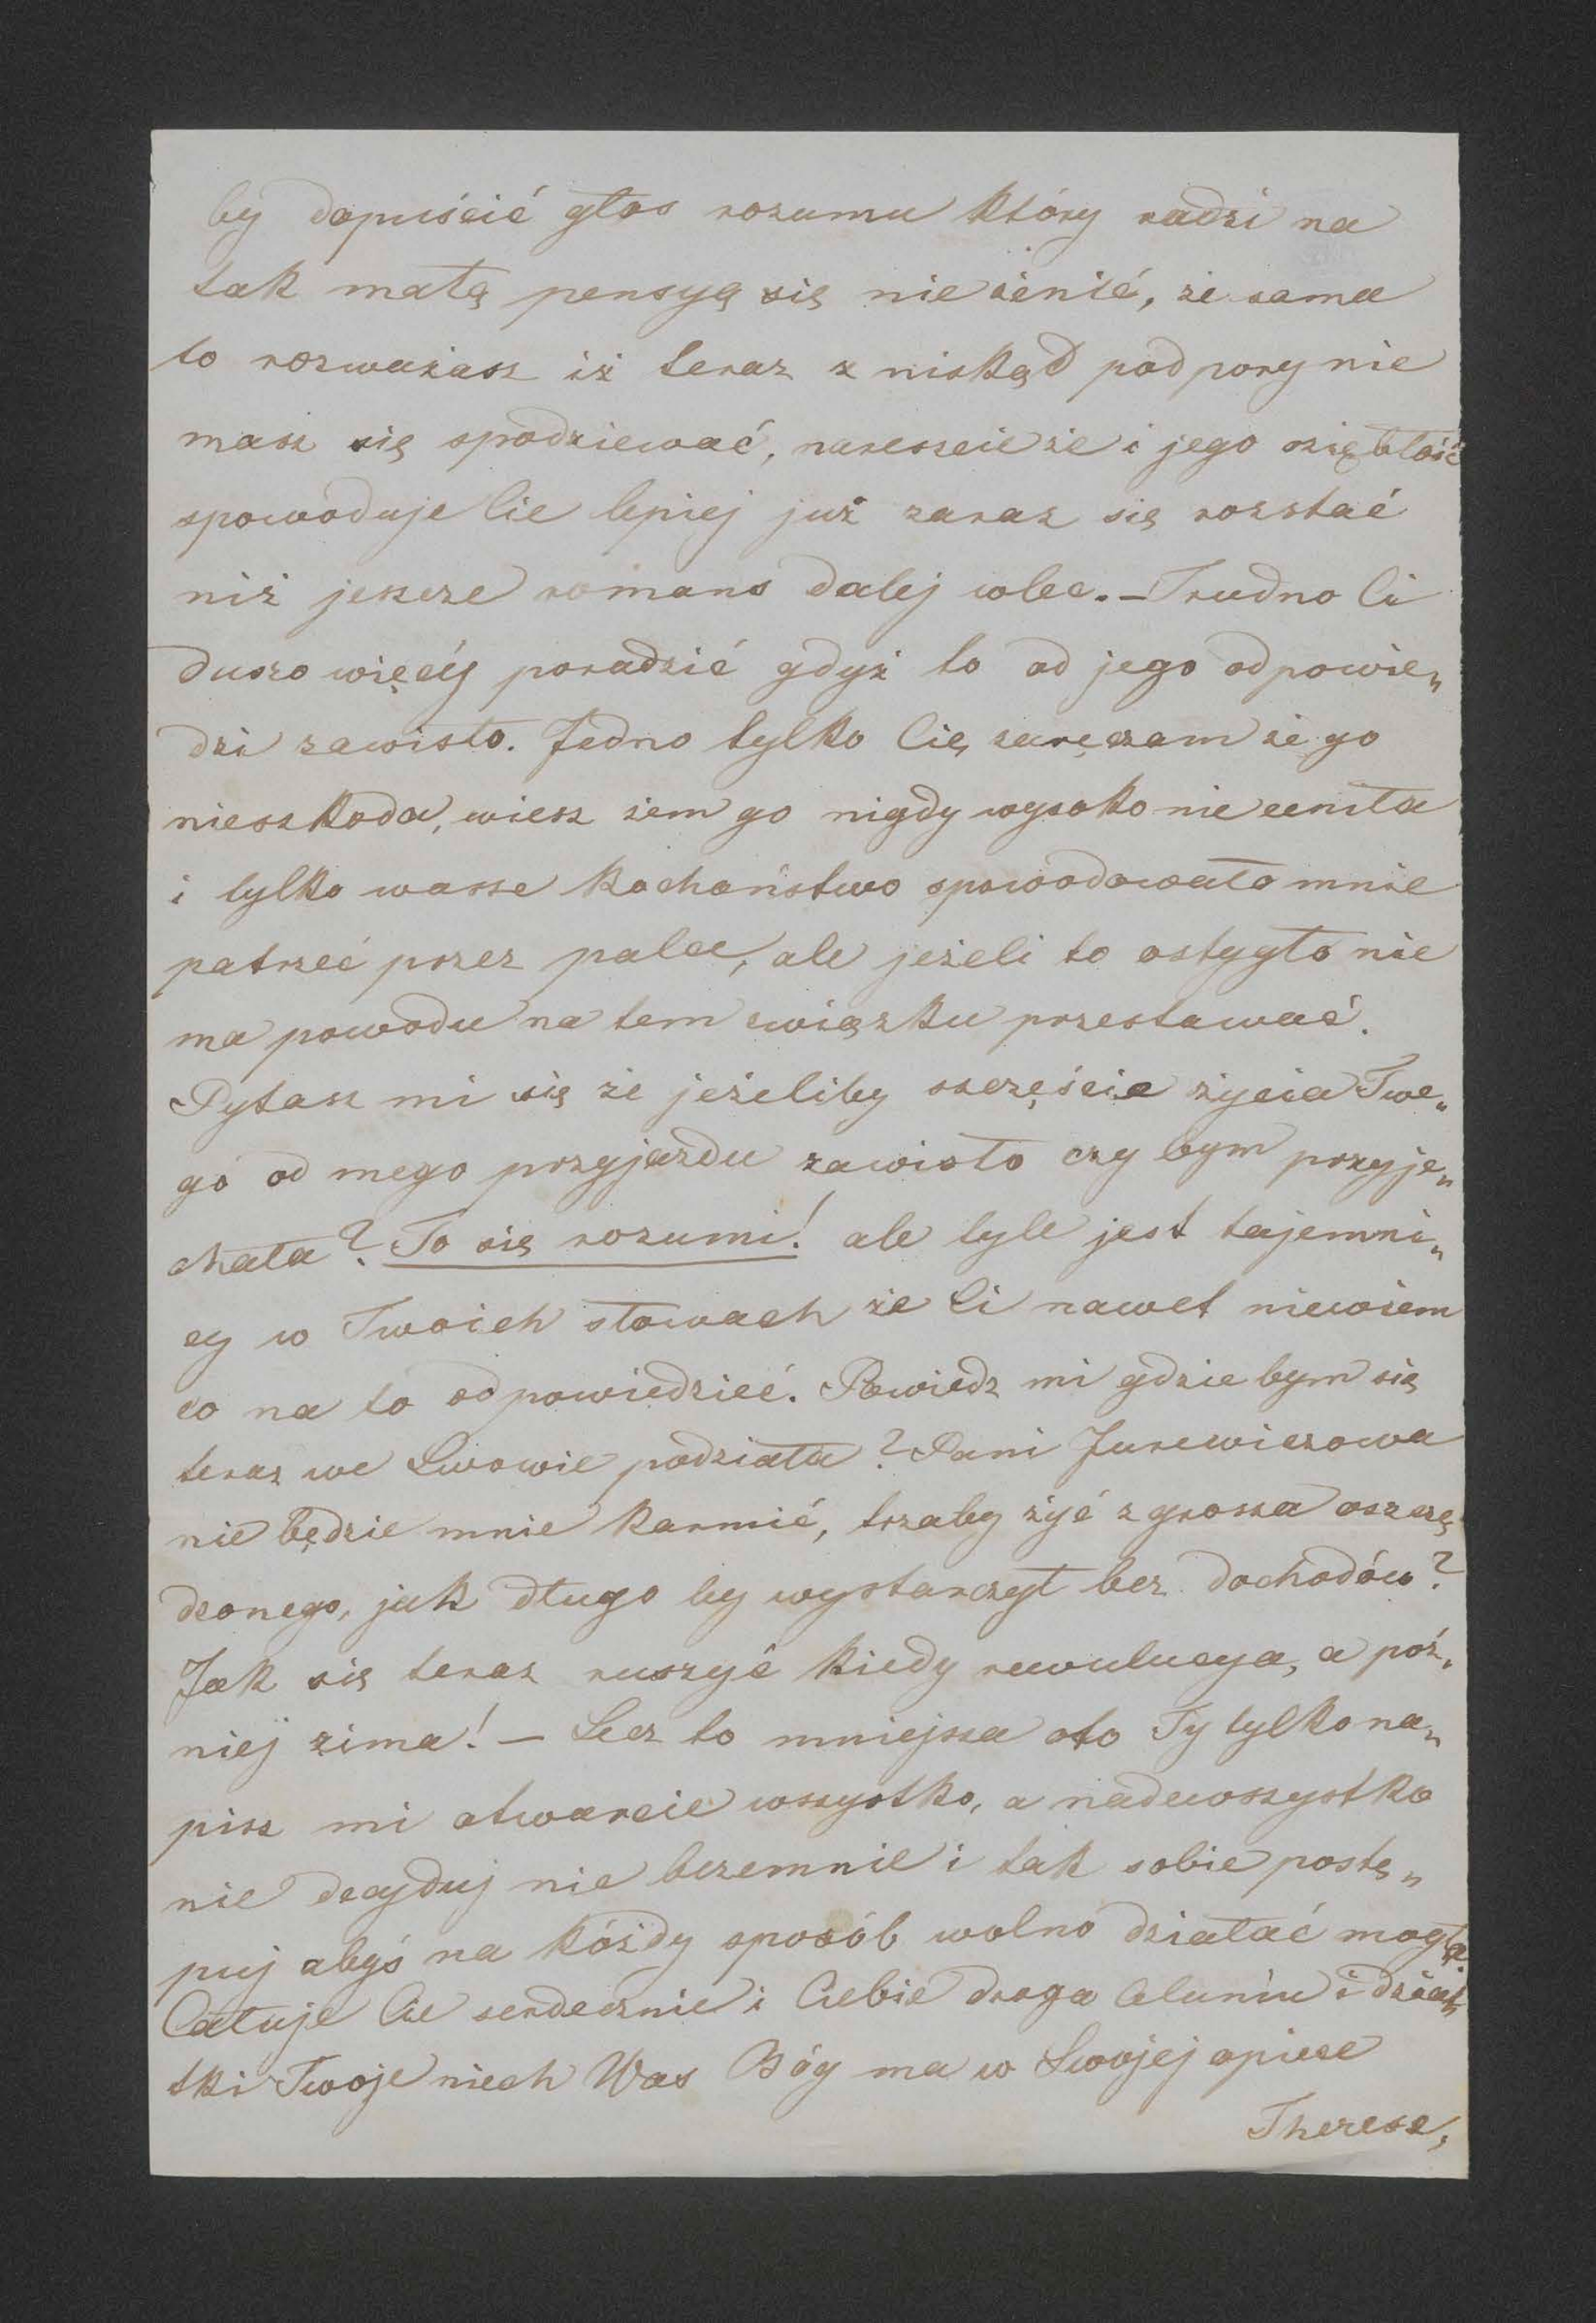 by dopuścić głos rozumu który radzi na
tak małą pensyą się nie żenić, że sama
to rozważasz iż teraz z niskąd podpory nie
masz się spodziewać, nareszcie że i jego oziębłość
spowoduje Cie lepiej już zaraz się rozstać
niż jeszcze romans dalej wlec. – Trudno Ci
duszo więcéj poradzić gdyż to od jego odpowie„
dzi zawisło. Jedno tylko Cię zaręczam że go
nieszkoda, wiesz żem go nigdy wysoko nie ceniła
i tylko wasze kochaństwo spowodowało mnie
patrzeć przez palce, ale jeżeli to ostygło nie
ma powodu na tem związku przestawać.
Pytasz mi się że jeżeliby szczęście życia Twe„
go od mego przyjazdu zawisło czy bym przyje„
chała? To się rozumi! ale tyle jest tajemni„
cy w Twoich słowach że Ci nawet niewiem
co na to odpowiedzieć. Powiedz mi gdzie bym się
teraz we Lwowie podziała? Pani Jurewiczowa
nie będzie mnie karmić, trzaby żyć z grosza oszczę
dzonego, jak długo by wystarczył bez dochodów?
Jak się teraz ruszyć kiedy rewulucya, a póź„
niej zima! – Lecz to mniejsza oto Ty tylko na„
pisz mi otwarcie wszystko, a nadewszystko
nie decyduj nie bezemnie i tak sobie postę„
puj abyś na kóżdy sposób wolno działać mogła
Całuje Cie serdecznie i Ciebie droga Celuniu i dziat„
tki Twoje niech Was Bóg ma w Swojej opiece
Therese,